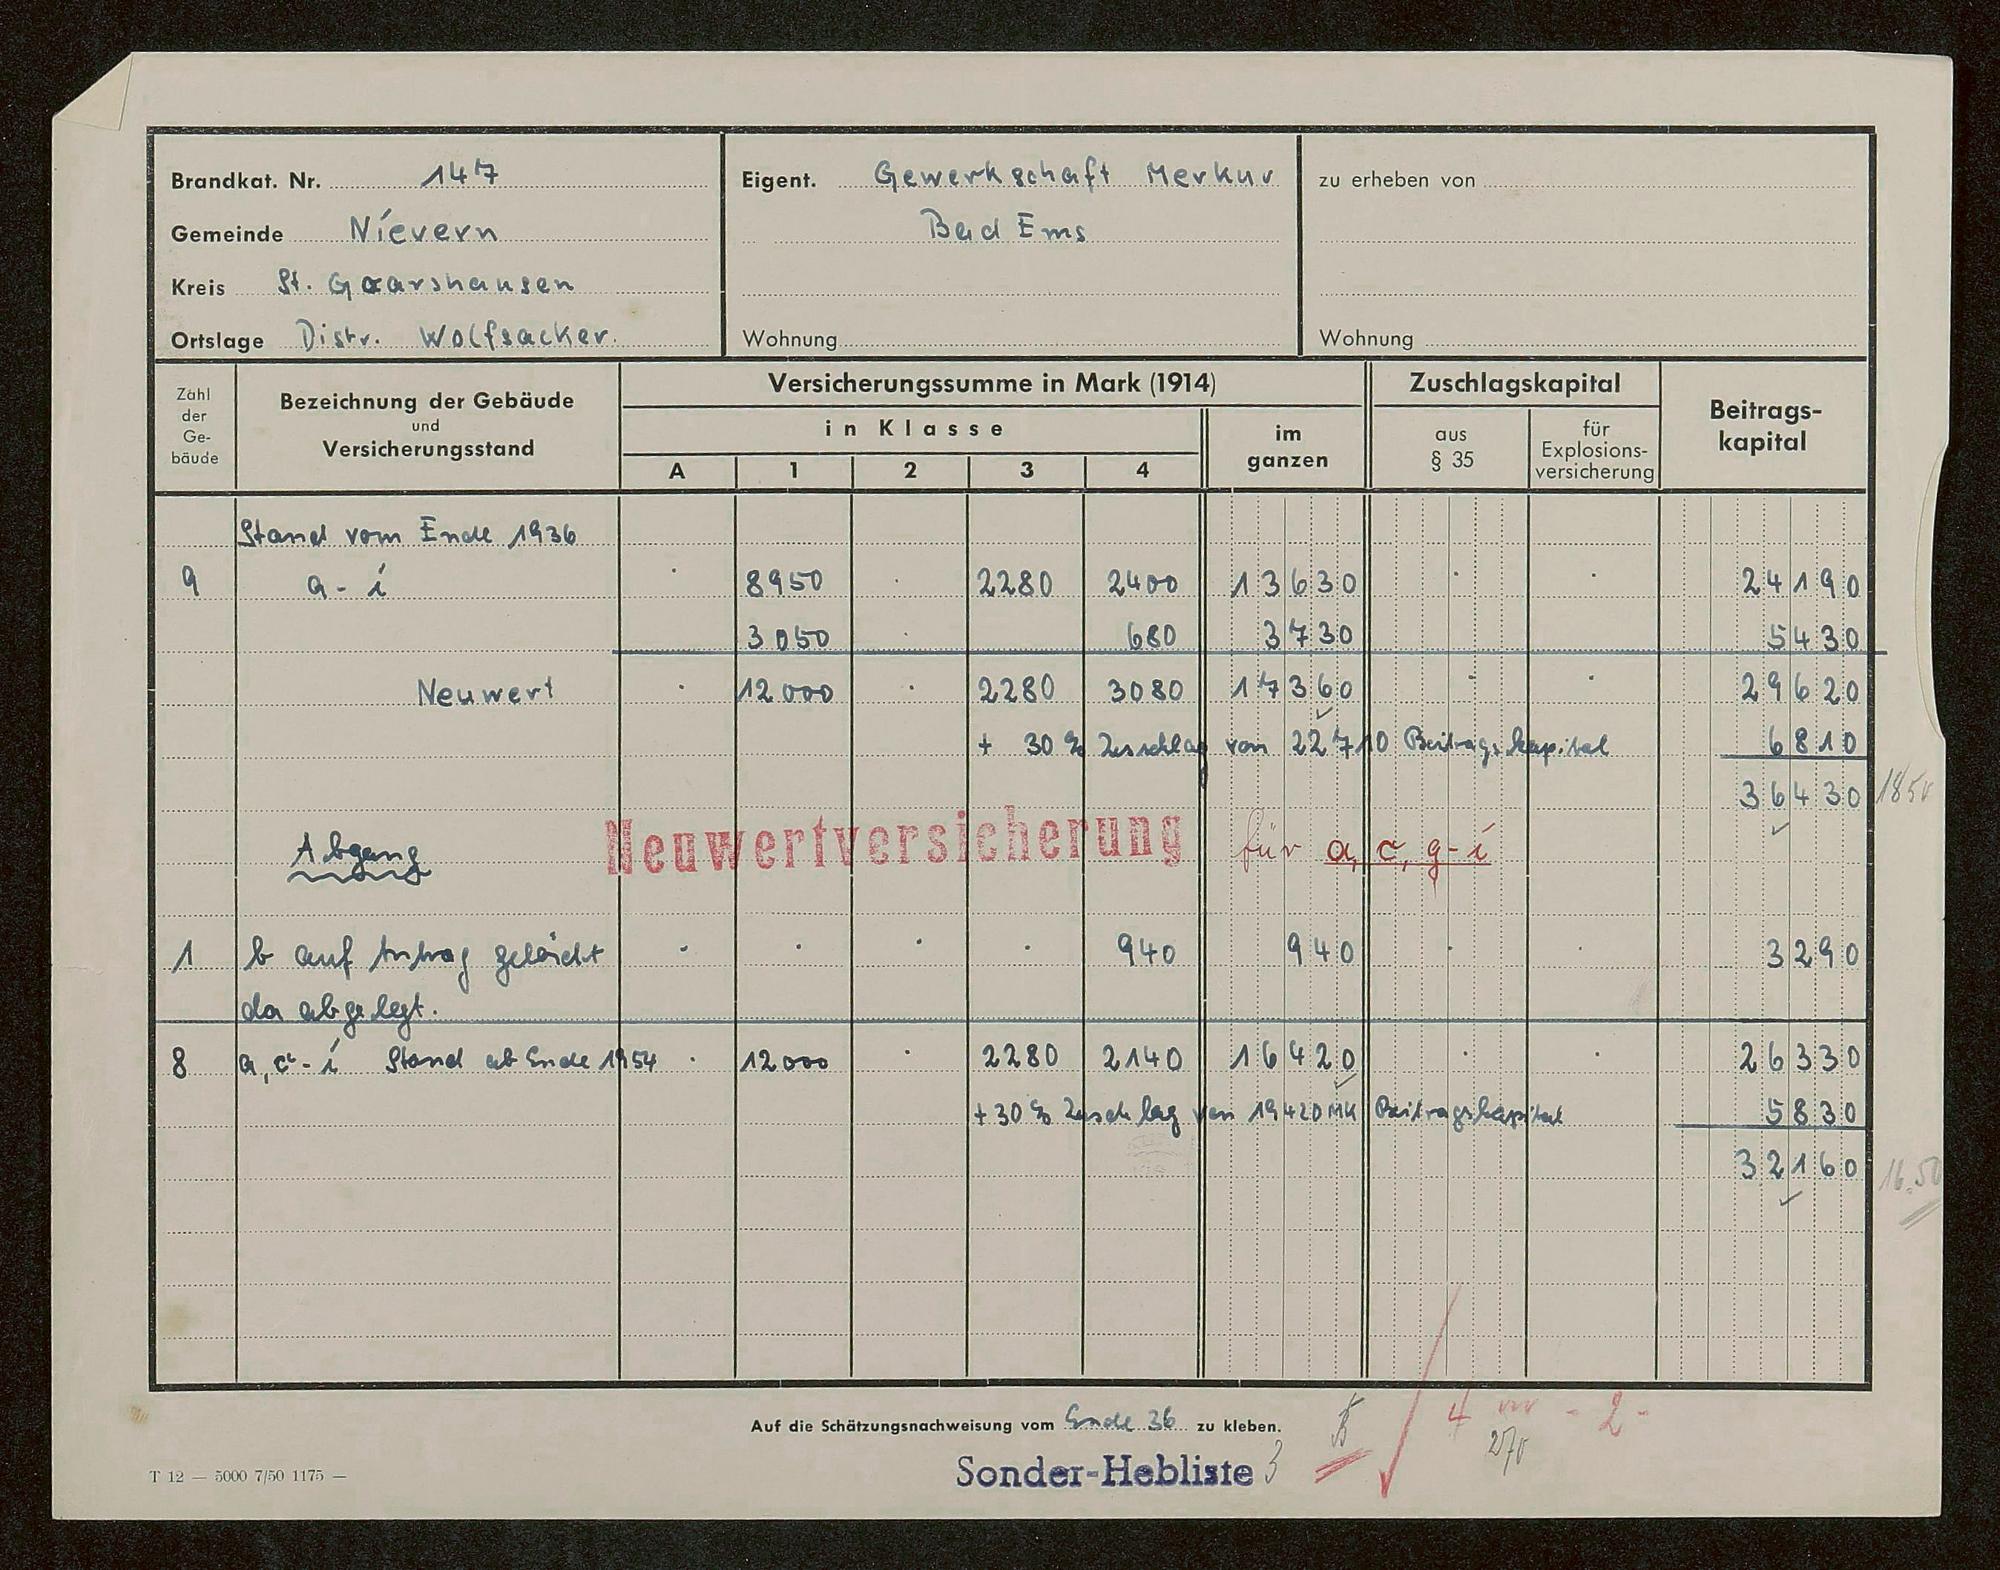 Brandkat. Nr. 147
Gemeinde Nievern
Kreis St. Goarshausen
Ortslage Distr. Wolfsacker.
Eigent. Gewerkschaft Merkur
Bad Ems
Wohnung
zu erheben von
Wohnung
Zahl der Ge- bäude
Bezeichnung der Gebäude und Versicherungsstand
Versicherungssumme in Mark (1914)
in Klasse
A 1 2 3 4
im ganzen
Zuschlagskapital
aus § 35
für Explosions- versicherung
Beitrags- kapital
Stand vom Ende 1936
9 a - i 8950 2280 2400 13630 24190
3050 680 3730 5430
Neuwert 12000 2280 3080 17360 29620
+ 30 % Zuschlag von 22710 Beitragskapital 6810
36430 1850
Neuwertversicherung für a, c, g - i
Abgang
1 b auf Antrag gelöscht 940 940 3290
da abgelegt.
8 a, c - i Stand ab Ende 1954 12000 2280 2140 16420 26330
+ 30 % Zuschlag von 19420 MK Beitragskapital 5830
32160 16.50
Auf die Schätzungsnachweisung vom Ende 36 zu kleben.
Sonder-Hebliste 3
4 - 2 -
T 12 — 5000 7/50 1175 —